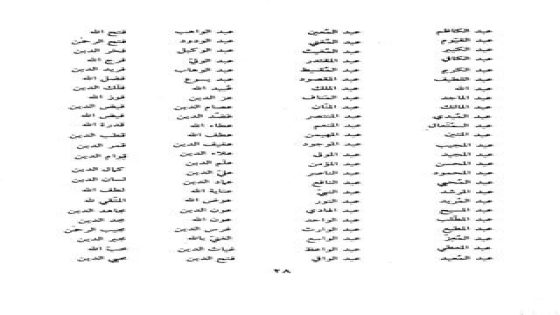 عبد الكاظم
عبد القيّوم
عبد الكبير
عبد الكافي
عبد الكريم
عبد اللطيف
عبد الله
عبد الماجد
عبد المالك
عبد المبدي
عبد المتعال
عبد المتين
عبد المجيب
عبد المجيد
عبد المحسن
عبد المحمود
عبد المحيي
عبد المرشد
عبد المريد
عبد المسيح
عبد المطّلب
عبد المعطي
عبد المعزّ
عبد المعيد
عبد المعين
عبد المغني
عبد المغيث
عبد المقتدر
عبد المقسط
عبد المقصود
عبد الملك
عبد المناف
عبد المنّان
عبد المنتصر
عبد المنعم
عبد المهيمن
عبد الموجود
عبد
عبد المؤمن
عبد الناصر
عبد النافع
عبد النبيّ
عبد النور
عبد الهادي
عبد الواحد
عبد الوارث
عبد الواسع
عبد الواعظ
عبد الوافي
عبد الواهب
عبد الودود
عبد الوكيل
عبد الوليّ
عبد الوهاب
عبد يسوع
عبيد الله
عزّ الدين
عصام الدين
عضد الدين
عطاء الله
عطف الله
عفيف الدين
علاء الدين
علم الدين
عليّ الدين
عماد الدين
عناية الله
عوض الله
عون الدين
عون الله
غرس الدين
الغنيّ بالله
غياث الدين
فتح الدين
فتح الله
فتح الرحمٰن
فخر الدين
فرج الله
فريد الدين
فضل الله
فلك الدين
فوز الله
فيض الدين
فيض الله
قدرة الله
قطب الدين
قمر الدين
قوام الدين
كمال الدين
لسان الدين
لطف الله
المتّقي لله
مجاهد الدين
مجد الدين
محبّ الرحمٰن
مجير الدين
محبّة الله
محيي الدين
٣٨